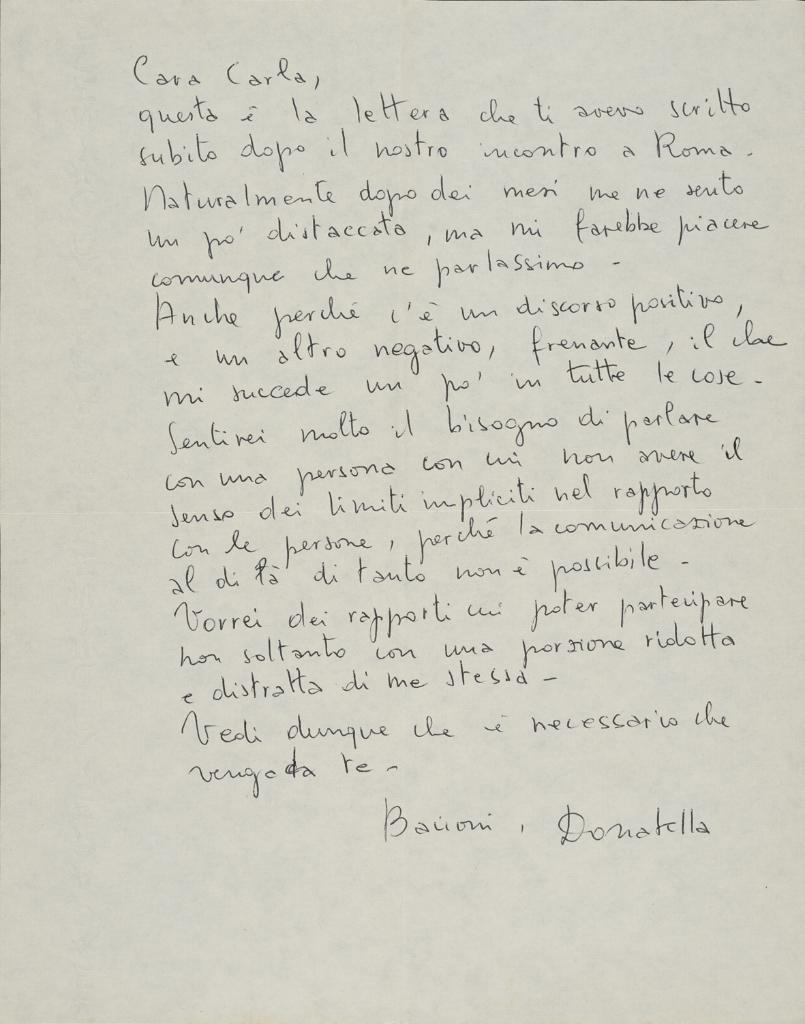 Cara Carla,
questa è la lettera che ti avevo scritto
subito dopo il nostro incontro a Roma.
Naturalmente dopo dei mesi me ne sento
un po' distaccata, ma mi farebbe piacere
comunque che ne parlassimo -
Anche perché c'è un discorso positivo,
e un altro negativo, frenante, il che
mi succede un po' in tutte le cose -
Sentirei molto il bisogno di parlare
con una persona con cui non avere il
senso dei limiti impliciti nel rapporto
con le persone, perché la comunicazione
al di là di tanto non è possibile -
Vorrei dei rapporti cui poter partecipare
non soltanto con una porzione ridotta
e distratta di me stessa -
Vedi dunque che è necessario che
venga da te -
Bacioni, Donatella